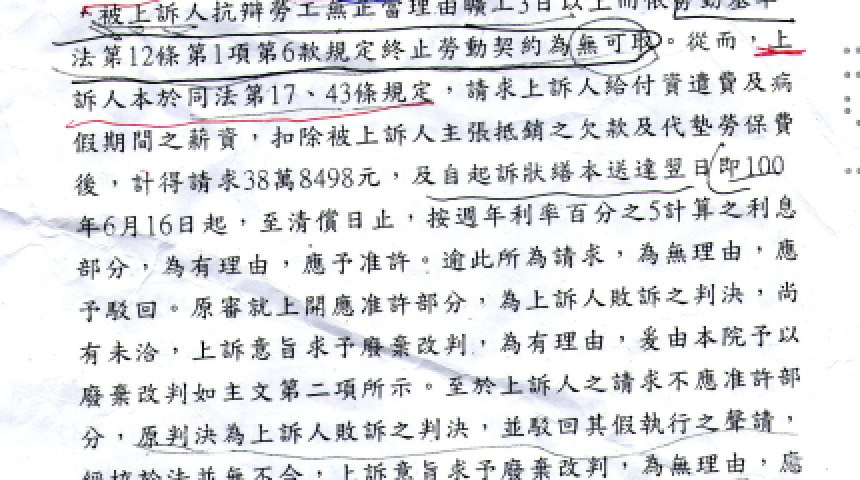 ，被上訴人抗辯勞工無正當理由曠工3日以上而依勞動基準
法第12條第1項第6款規定終止勞動契約為無可取。從而，上
訴人本於同法第17、43條規定，請求上訴人給付資遣費及病
假期間之薪資，扣除被上訴人主張抵銷之欠款及代墊勞保費
後，計得請求38萬8498元，及自起訴狀繕本送達翌日即100
年6月16日起，至清償日止，按週年利率百分之5計算之利息
部分，為有理由，應予准許。逾此所為請求，為無理由，應
予駁回。原審就上開應准許部分，為上訴人敗訴之判決，尚
有未洽，上訴意旨求予廢棄改判，為有理由，爰由本院予以
廢棄改判如主文第二項所示。至於上訴人之請求不應准許部
分，原判決為上訴人敗訴之判決，並駁回其假執行之聲請，
經核於法並無不合，上訴意旨求予廢棄改判，為無理由，應